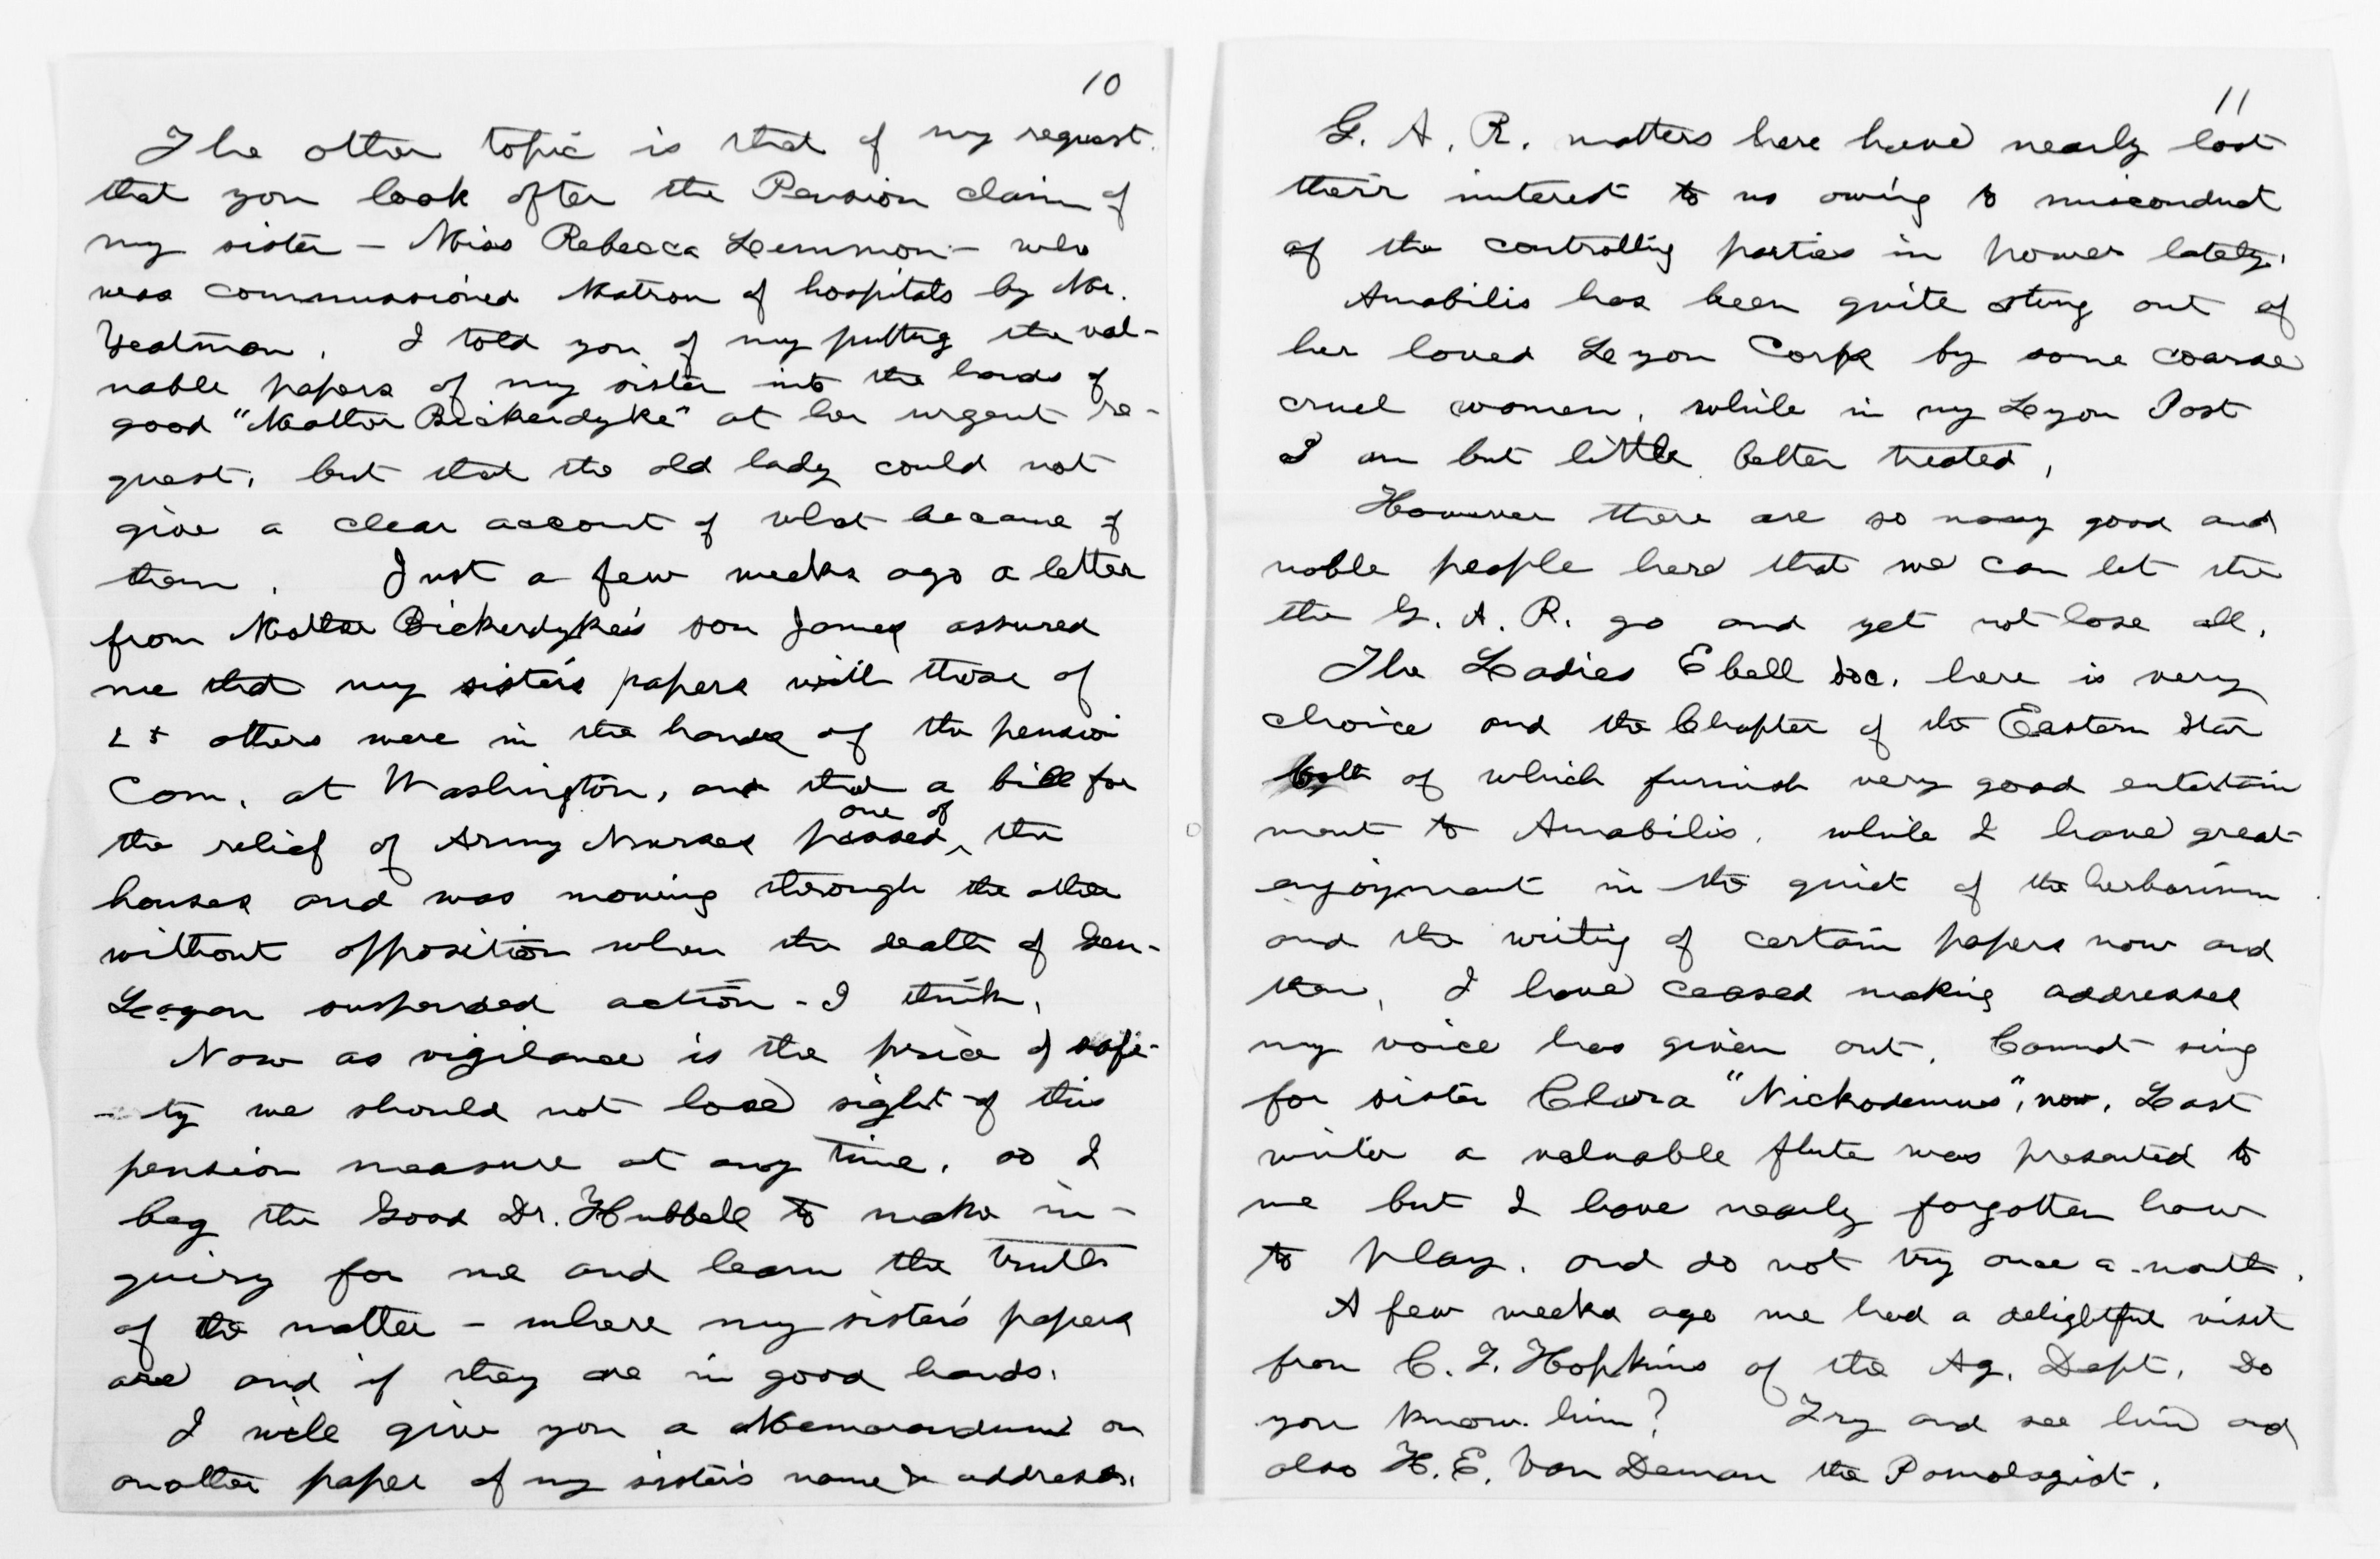 10
The other topic is that of my request
that you look after the Pension claim of
my sister – Miss Rebecca Lemmon – who
was commissioned Matron of hospitals by Mr.
Yeatman. I told you of my putting the val-
uable papers of my sister into the hands of
good "Mother Bickerdyke" at her urgent re-
quest, but that the old lady could not
give a clear account of what became of
them. Just a few weeks ago a letter
from Mother Bickerdyke's son James assured
me that my sister's papers with those of
others were in the hands of the pension
Com. at Washington, and that a bill for
the relief of Army Nurses passed ^one of the
houses and was moving through the other
without opposition when the death of Gen-
Logan suspended action – I think.
Now as vigilance is the price of safe-
-ty we should not lose sight of this
pension measure at any time. so I
beg the Good Dr. Hubbell to make in-
quiry for me and learn the truth
of the matter – where my sister's papers
are and if they are in good hands.
I will give you a Memorandum on
another paper of my sister's name & address.
11
G. A. R. matters here have nearly lost
their interest to us owing to misconduct
of the controlling parties in power lately.
Amabilis has been quite stung out of
her loved Lyon Corps by some coarse
cruel women, while in my Lyon Post
I am but little better treated.
However there are so many good and
noble people here that we can let the
the G. A. R. go and yet not lose all.
The Ladies Ebell Soc. here is very
choice and the Chapter of the Eastern Star
both of which furnish very good entertain
ment to Amabilis, while I have great
enjoyment in the quiet of the herbarium
and the writing of certain papers now and
then. I have ceased making addresses
my voice has given out. Cannot sing
for sister Clara "Nickodemus", now. Last
winter a valuable flute was presented to
me but I have nearly forgotten how
to play. and do not try once a month.
A few weeks ago we had a delightful visit
from C. L. Hopkins of the Ag. Dept. Do
you know him? Try and see him and
also H. E. Van Deman the Pomologist.